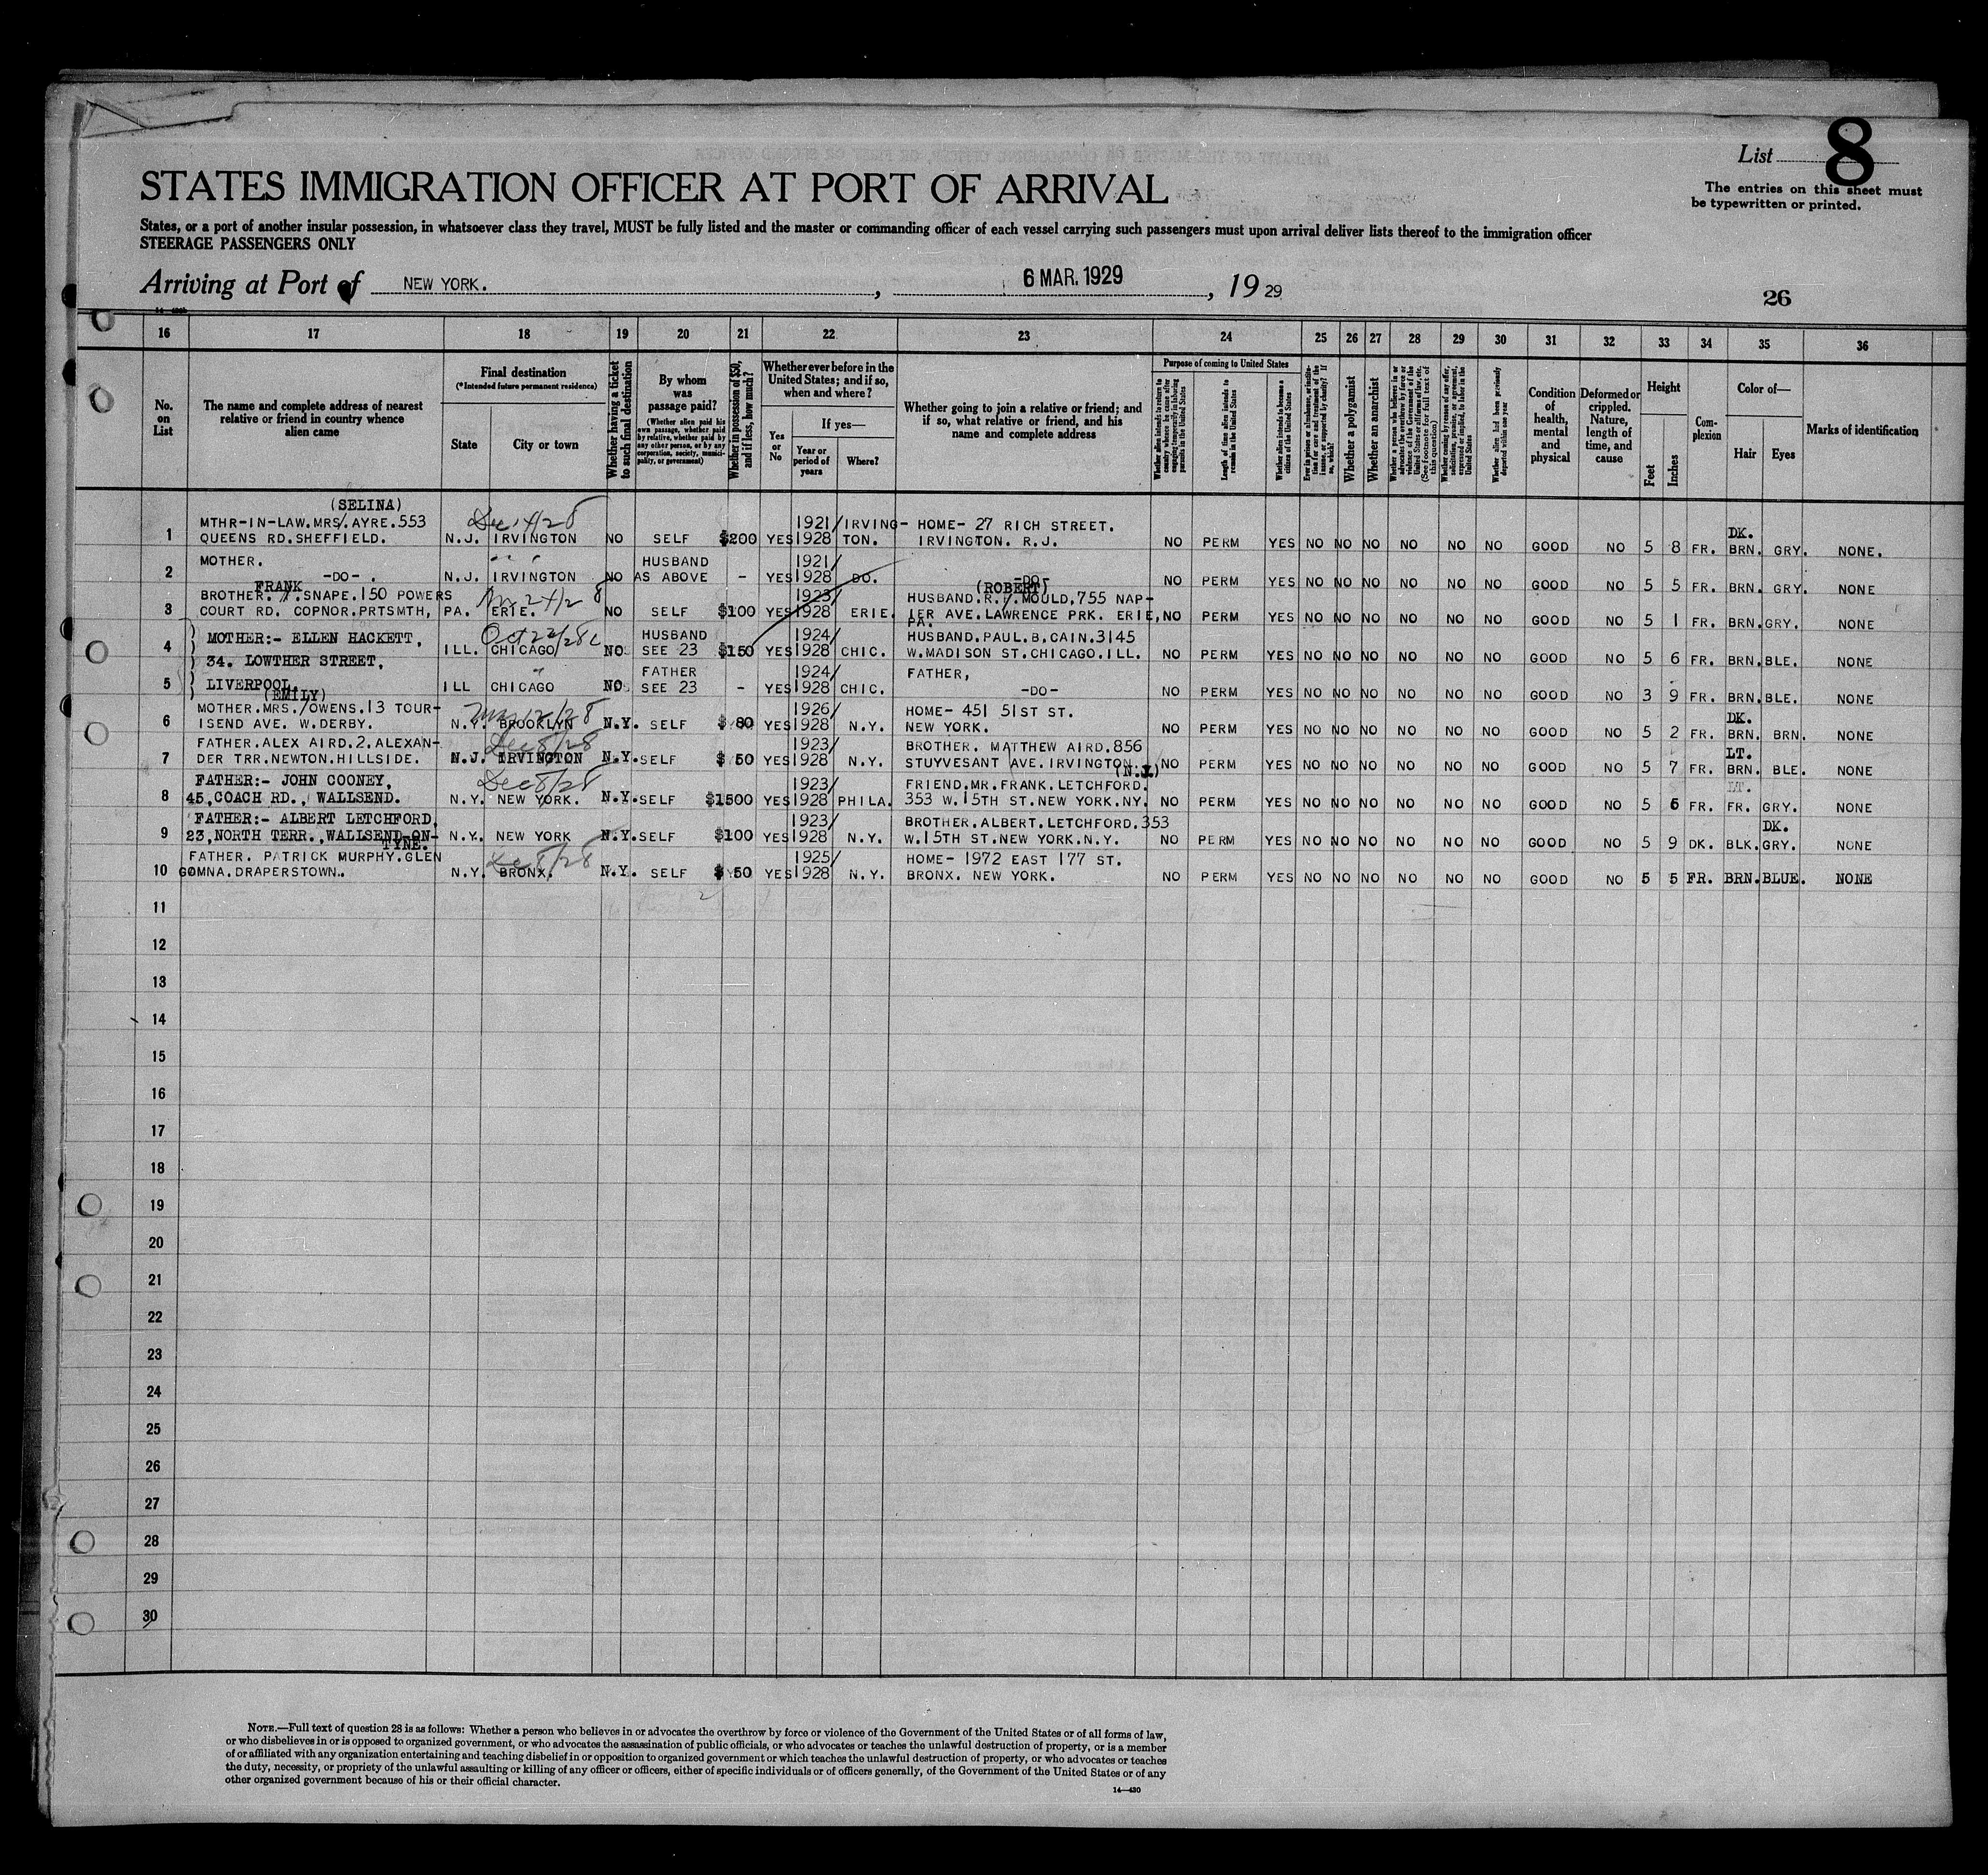 List 8
The entries on this sheet must
be typewritten or printed.
STATES IMMIGRATION OFFICER AT PORT OF ARRIVAL
States, or a port of another insular possession, in whatsoever class they travel, MUST be fully listed and the master or commanding officer of each vessel carrying such passengers must upon arrival deliver lists thereof to the immigration officer
STEERAGE PASSENGERS ONLY
Arriving at Port of NEW YORK. , 6 MAR. 1929 , 19 29
26
16 17 18 19 20 21 22 23 24 25 26 27 28 29 30 31 32 33 34 35 36
No. on List
The name and complete address of nearest relative or friend in country whence alien came
Final destination
(*Intended future permanent residence)
State
City or town
Whether having a ticket to such final destination
By whom was passage paid?
(Whether alien paid his own passage, whether paid by relative, whether paid by any other person, or by any corporation, society, municipality, or government)
Whether in possession of $50, and if less, how much?
Whether ever before in the United States; and if so, when and where?
Yes or No
If yes—
Year or period of years
Where?
Whether going to join a relative or friend; and if so, what relative or friend, and his name and complete address
Purpose of coming to United States
Length of time alien intends to remain in the United States
Whether alien intends to become a citizen of the United States
Whether a polygamist
Whether an anarchist
(See footnote for full text of this question)
Whether alien had been previously deported within one year
Condition of health, mental and physical
Deformed or crippled. Nature, length of time, and cause
Height
Feet
Inches
Complexion
Color of—
Hair
Eyes
Marks of identification
(SELINA) Dec 4/28
MTHR-IN-LAW.MRS/.AYRE.553 1921/ IRVING- HOME- 27 RICH STREET. DK.
1 QUEENS RD.SHEFFIELD. N.J. IRVINGTON NO SELF $200 YES 1928 TON. IRVINGTON. R.J. NO PERM YES NO NO NO NO NO NO GOOD NO 5 8 FR. BRN. GRY. NONE.
MOTHER. HUSBAND 1921/
2 -DO- . N.J. IRVINGTON NO AS ABOVE - YES 1928 DO. -DO- NO PERM YES NO NO NO NO NO NO GOOD NO 5 5 FR. BRN. GRY. NONE
FRANK (ROBERT)
BROTHER. /.SNAPE.150 POWERS 1923/ HUSBAND.R./.MOULD,755 NAP-
3 COURT RD. COPNOR.PRTSMTH, PA. ERIE. NO SELF $100 YES 1928 ERIE. IER AVE.LAWRENCE PRK. ERIE, PA. NO PERM YES NO NO NO NO NO NO GOOD NO 5 1 FR. BRN. GRY. NONE
Oct 22/28
MOTHER:- ELLEN HACKETT, HUSBAND 1924/ HUSBAND.PAUL.B.CAIN.3145
4 ILL. CHICAGO NO SEE 23 $150 YES 1928 CHIC. W.MADISON ST.CHICAGO.ILL. NO PERM YES NO NO NO NO NO NO GOOD NO 5 6 FR. BRN. BLE. NONE
34. LOWTHER STREET, FATHER 1924/ FATHER,
5 LIVERPOOL. ILL CHICAGO NO SEE 23 - YES 1928 CHIC. -DO- NO PERM YES NO NO NO NO NO NO GOOD NO 3 9 FR. BRN. BLE. NONE
(EMILY)
MOTHER.MRS./OWENS.13 TOUR- 1926/ HOME- 451 51ST ST. DK.
6 ISEND AVE. W.DERBY. N.Y. BROOKLYN N.Y. SELF $ 80 YES 1928 N.Y. NEW YORK. NO PERM YES NO NO NO NO NO NO GOOD NO 5 2 FR. BRN. BRN. NONE
Dec 8/28
FATHER.ALEX AIRD.2.ALEXAN- 1923/ BROTHER. MATTHEW AIRD.856 LT.
7 DER TRR.NEWTON.HILLSIDE. N.J. IRVINGTON N.Y. SELF $ 50 YES 1928 N.Y. STUYVESANT AVE.IRVINGTON (N.J.) NO PERM YES NO NO NO NO NO NO GOOD NO 5 7 FR. BRN. BLE. NONE
Dec 8/28
FATHER:- JOHN COONEY, 1923/ FRIEND.MR.FRANK.LETCHFORD. LT.
8 45,COACH RD., WALLSEND. N.Y. NEW YORK. N.Y. SELF $1500 YES 1928 PHILA. 353 W.15TH ST.NEW YORK.NY. NO PERM YES NO NO NO NO NO NO GOOD NO 5 6 FR. FR. GRY. NONE
FATHER:- ALBERT LETCHFORD, 1923/ BROTHER.ALBERT.LETCHFORD.353 DK.
9 23,NORTH TERR.,WALLSEND-ON-TYNE. N.Y. NEW YORK N.Y. SELF $100 YES 1928 N.Y. W.15TH ST.NEW YORK.N.Y. NO PERM YES NO NO NO NO NO NO GOOD NO 5 9 DK. BLK. GRY. NONE
Dec 8/28
FATHER. PATRICK MURPHY.GLEN 1925/ HOME- 1972 EAST 177 ST.
10 GOMNA.DRAPERSTOWN. N.Y. BRONX. N.Y. SELF $ 50 YES 1928 N.Y. BRONX. NEW YORK. NO PERM YES NO NO NO NO NO NO GOOD NO 5 5 FR. BRN. BLUE. NONE
11
12
13
14
15
16
17
18
19
20
21
22
23
24
25
26
27
28
29
30
NOTE.—Full text of question 28 is as follows: Whether a person who believes in or advocates the overthrow by force or violence of the Government of the United States or of all forms of law,
or who disbelieves in or is opposed to organized government, or who advocates the assassination of public officials, or who advocates or teaches the unlawful destruction of property, or is a member
of or affiliated with any organization entertaining and teaching disbelief in or opposition to organized government or which teaches the unlawful destruction of property, or who advocates or teaches
the duty, necessity, or propriety of the unlawful assaulting or killing of any officer or officers, either of specific individuals or of officers generally, of the Government of the United States or of any
other organized government because of his or their official character.
14—430